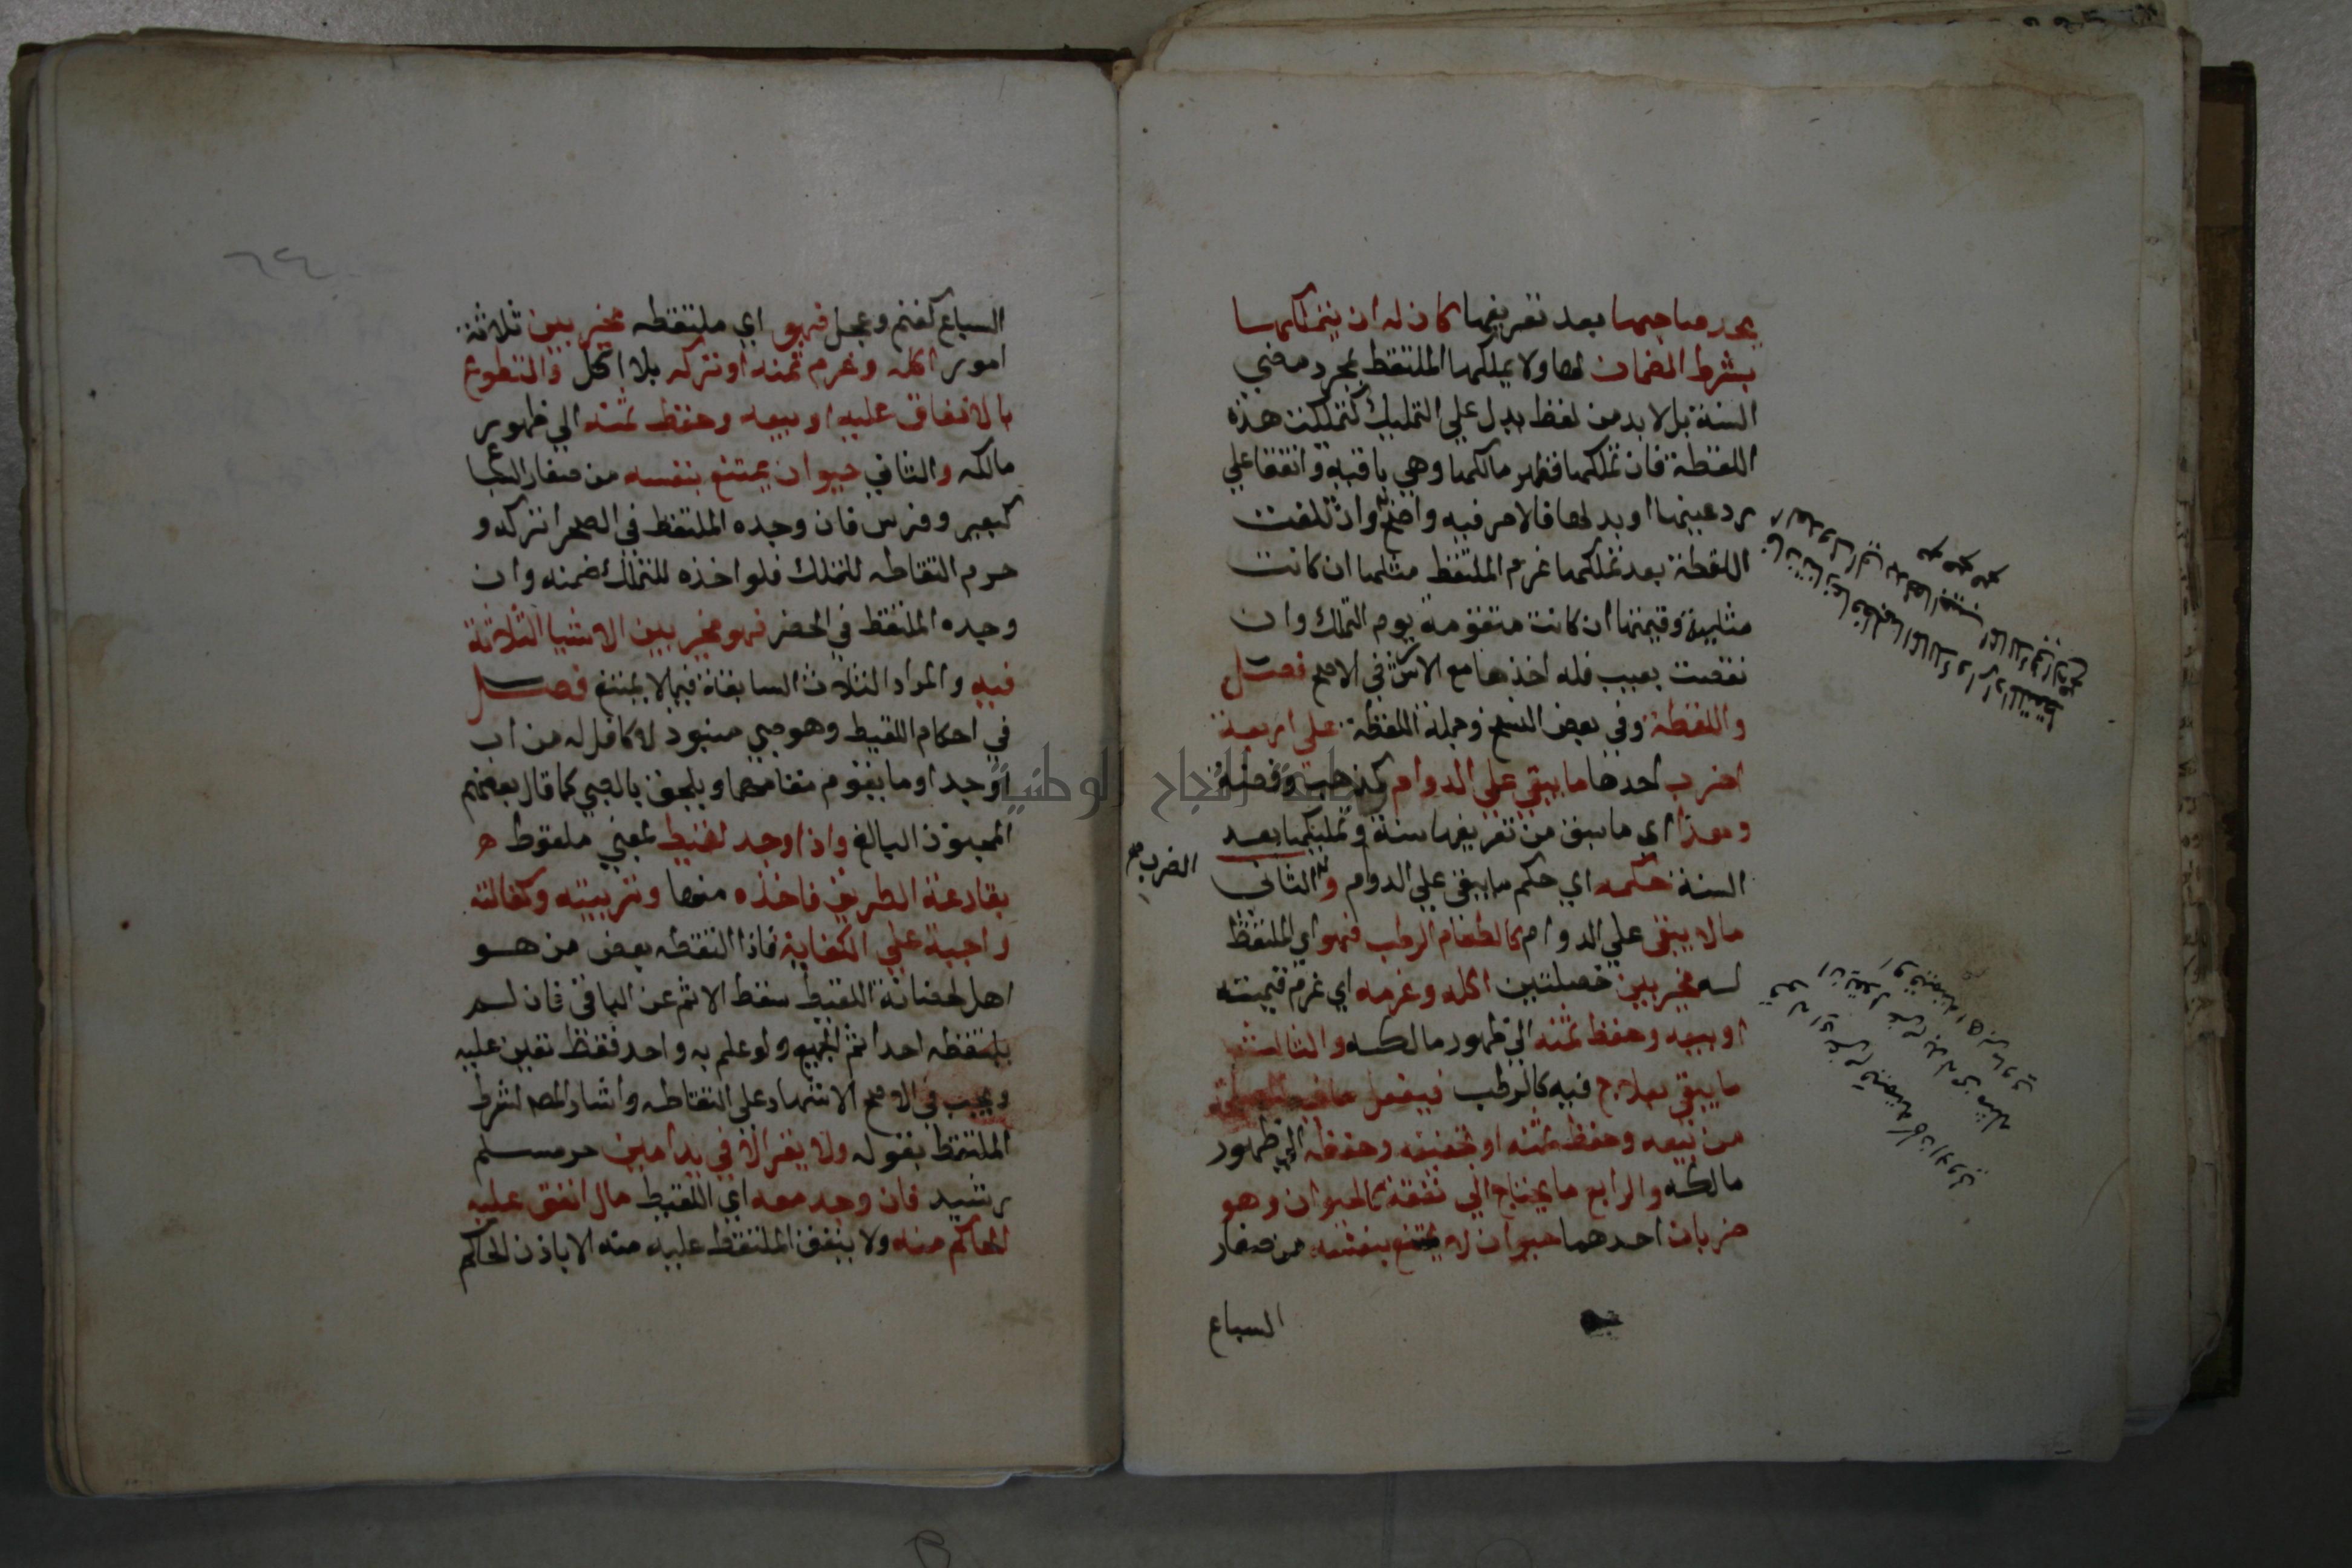 يجد صاحبها بعد تعريفها كان له ان يتملكها
بشرط الضمان لها ولا يملكها الملتقط بمجرد مضي
السنة بل لا بد من لفظ يدل علي التمليك كتملكت هذه
اللقطة فان تملكها فظهر مالكها وهي باقية واتفقا علي
رد عينها او بدلها فالامر فيه واضح وان تلفت
اللقطة بعد تملكها غرم الملتقط مثلها ان كانت
مثلية وقيمتها ان كانت متقومة يوم التملك وان
نقصت بعيب فله اخذها مع الارش في الاصح فصل
واللقطة وفي بعض النسخ وجملة اللقطة علي اربعة
اضرب احدها ما يبقي علي الدوام كذهب وفضة
وهذا اي ما سبق من تعريفها سنة وتمليكها بعد
السنة حكمه اي حكم ما يبقي علي الدوام والثاني
الضرب صح
مالا يبقي علي الدوام كالطعام الرطب فهو اي الملتقط
له مخير بين خصلتين اكله وغرمه اي غرم قيمته
او بيعه وحفظ ثمنه الي ظهور مالكه والثالث
ما يبقي بعلاج فيه كالرطب فيفعل
من بيعه وحفظ ثمنه او تجفيفه وحفظه الي ظهور
مالكه والرابع ما يحتاج الي نفقة كالحيوان وهو
ضربان احدهما حيوان لا يمتنع بنفسه من صغار
السباع
السباع كغنم وعجل فهو اي ملتقطه مخير بين ثلاثة
امور اكله وغرم ثمنه او تركه بلا اكل والتطوع
بالانفاق عليه او بيعه وحفظ ثمنه الي ظهور
مالكه والثاني حيوان يمتنع بنفسه من صغار السباع
كبعير وفرس فان وجده الملتقط في الصحرا تركه و
حرم التقاطه للتملك فلو اخذه للتملك ضمنه وان
وجده الملتقط في الحضر فهو مخير بين الاشيا الثلاثة
فيه والمراد الثلاث السابقة فيما لا يمتنع فصل
في احكام اللقيط وهو صبي منبوذ لا كافل له من اب
اوجد او ما يقوم مقامهما ويلحق بالصبي كما قال بعضهم
المجنون البالغ واذا وجد لقيط بمعني ملقوط
بقارعة الطريق فاخذه منها وتربيته وكفالته
واجبة علي الكفاية فاذا التقطه بعض من هو
اهل لحضانة اللقيط سقط الاثم عن الباقي فان لم
يلتقطه احد اثم الجميع ولو علم به واحد فقط تعين عليه
ويجب في الاصح الاشهاد علي التقاطه واشار المص لشرط
الملتقط بقوله ولا يقر الا في يد امين حر مسلم
رشيد فان وجد معه اي اللقيط مال انفق عليه
الحاكم منه ولا ينفق الملتقط عليه منه الا باذن الحاكم
جامعة النجاح الوطنية